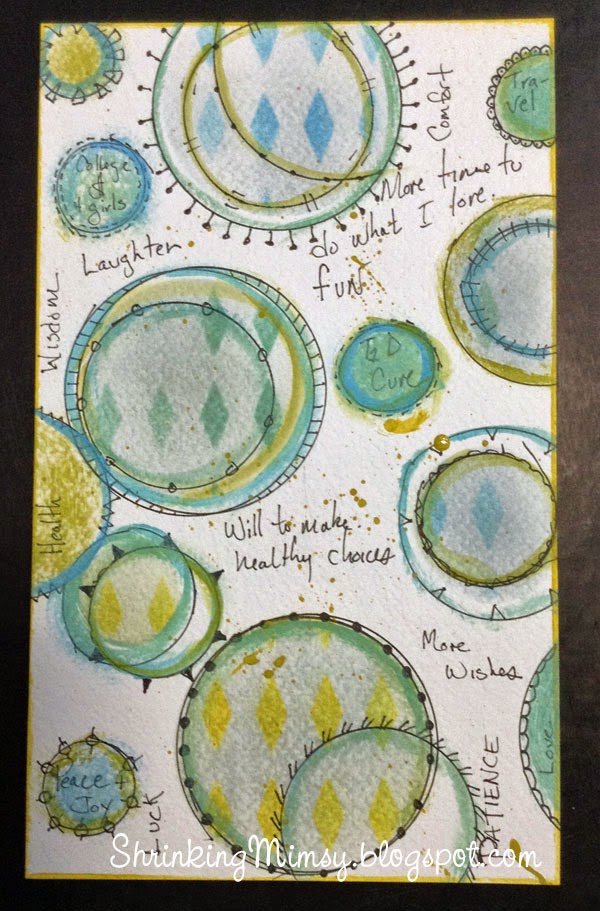 Comfort
Tra-
vel
College
4
girls
More time to
do what I love.
fun
Laughter
Wisdom
Cure
Health
Will to make
healthy choices
More
Wishes
Love
Peace +
Joy
Luck
PATIENCE
ShrinkingMimsy.blogspot.com